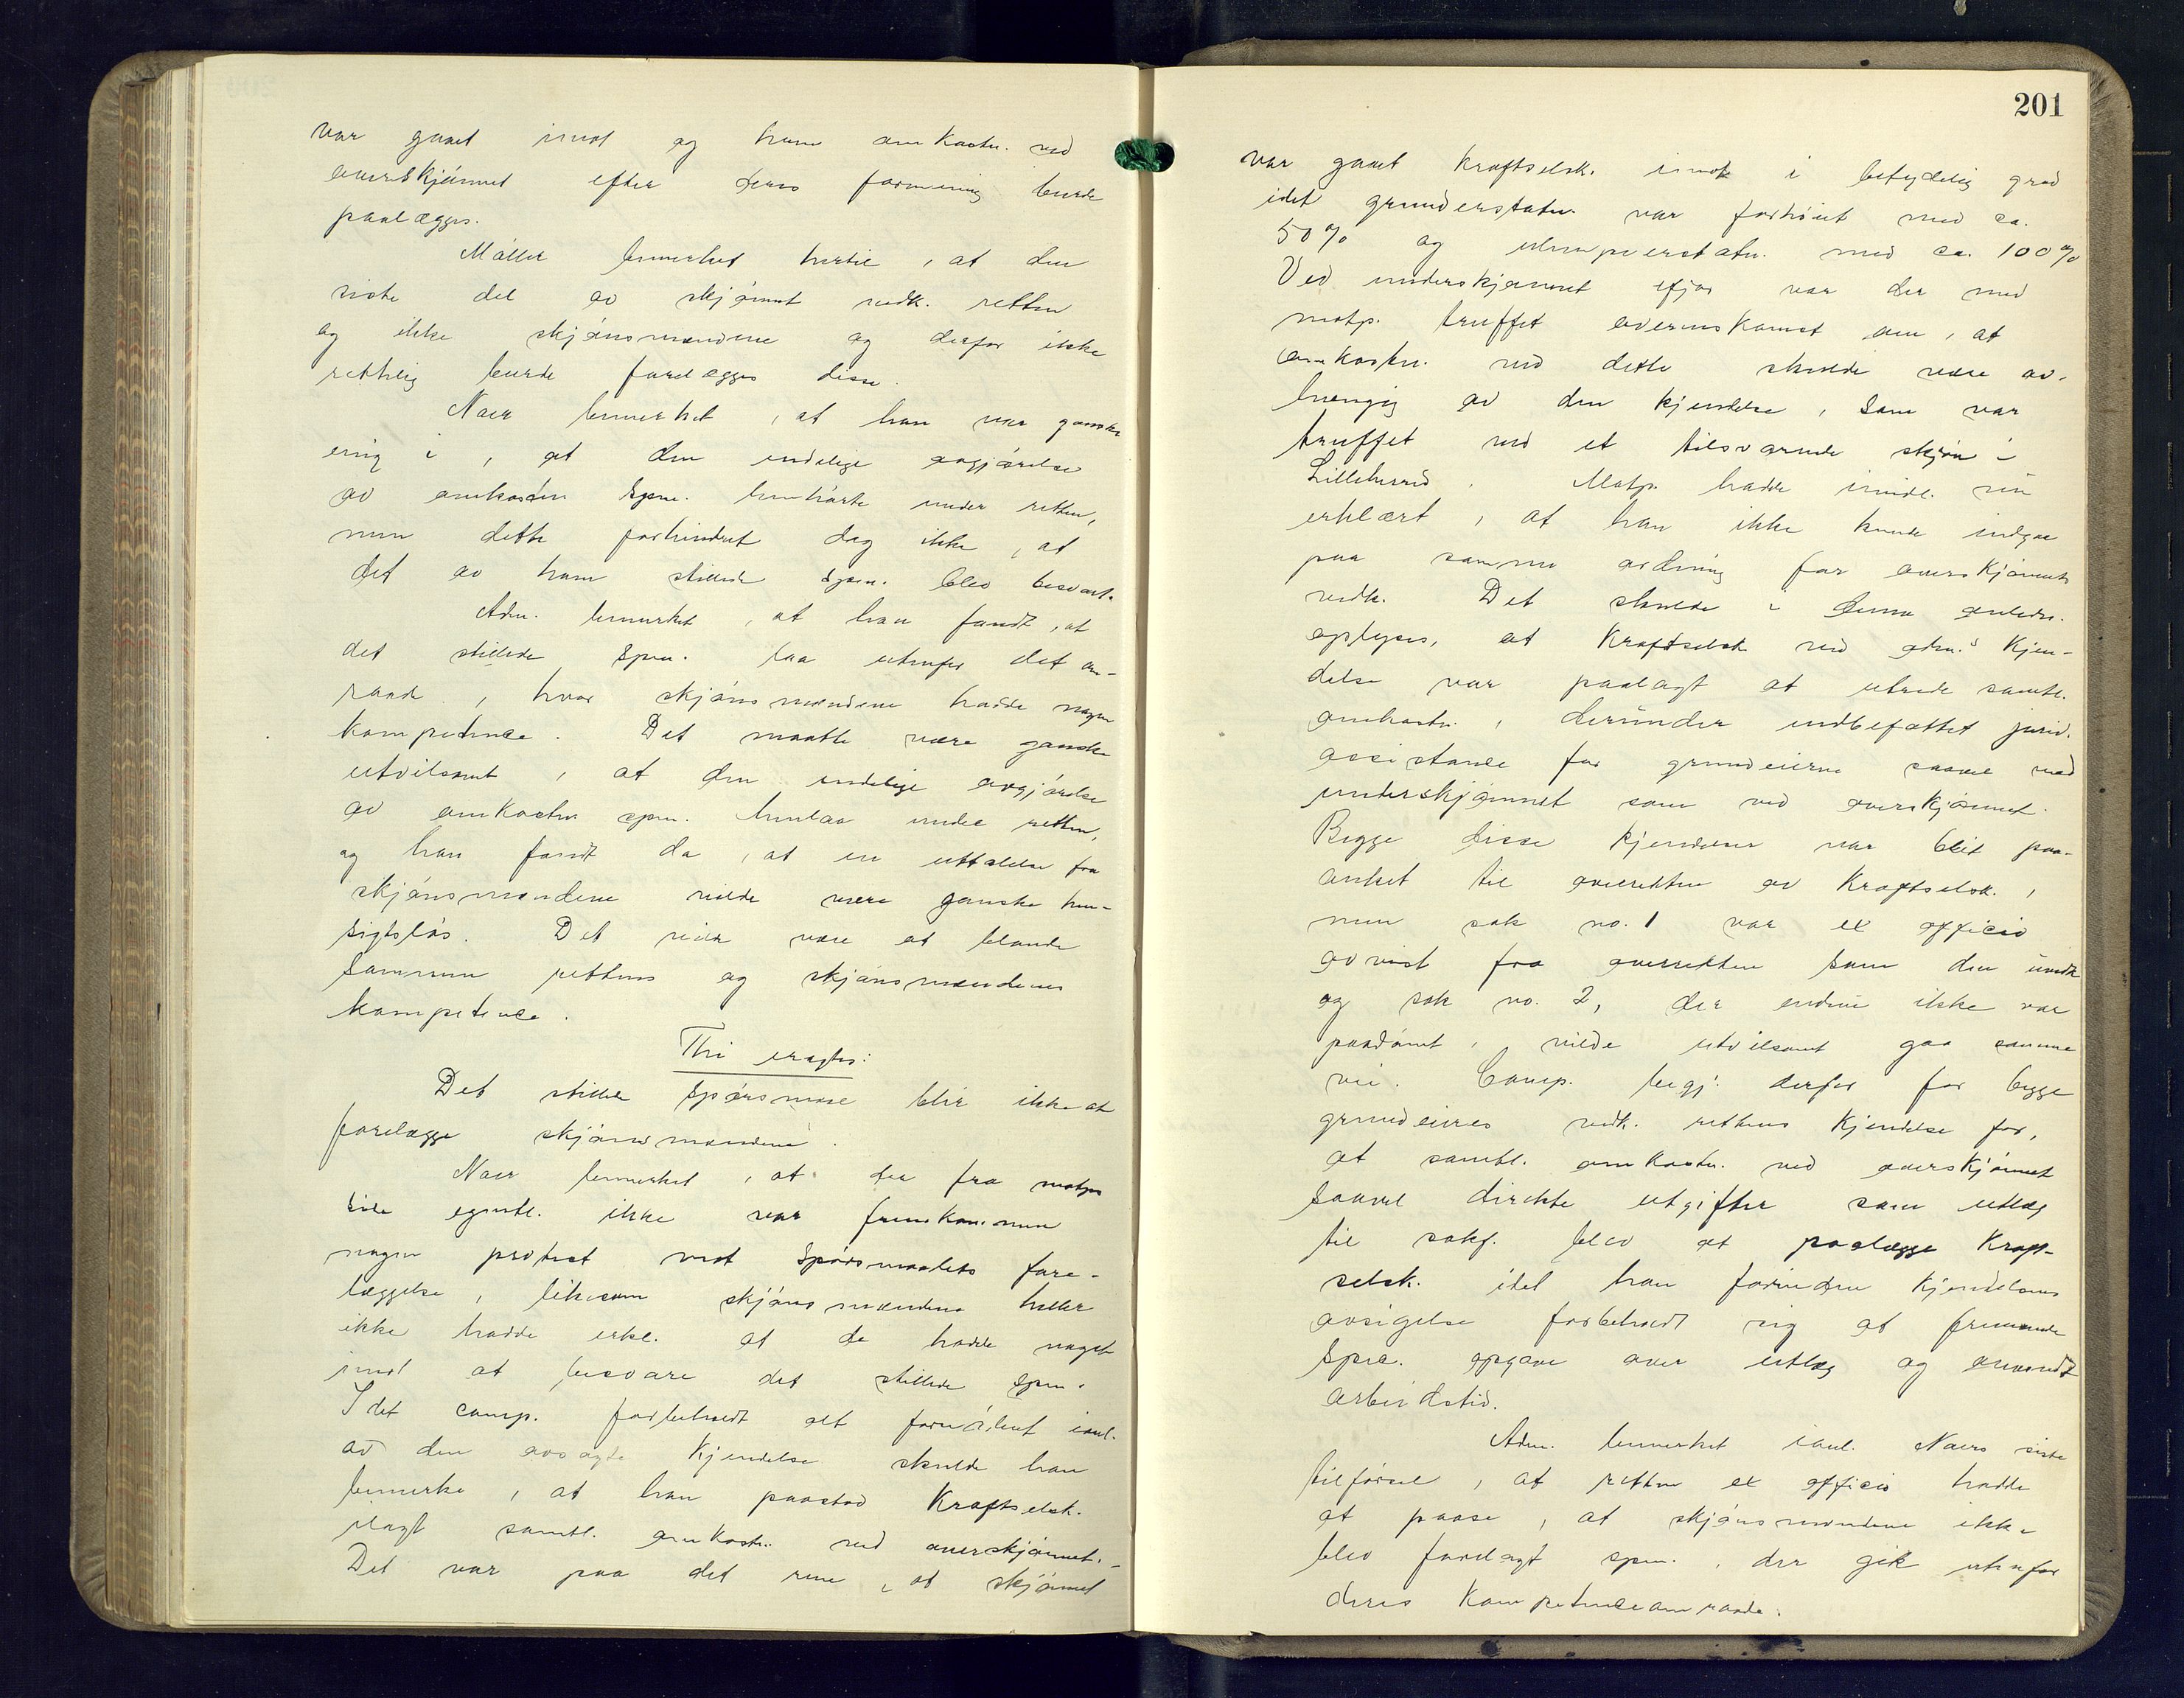 var gaaet imot og hvem omkostn. ved
overskjönnet efter deres formening burde
paalægges.
Möller bemerket hertil, at den
siste del av skjönnet vedk. retten
og ikke skjönsmændene og derfor ikke
rettelig burde forelægges disse.
Naer bemerket, at han var ganske
enig i, at den endelige avgjörelse
av omkostn. spm. henhörte under retten,
men dette forhindret dog ikke, at
det av ham stillede spm. blev besvart.
Adm. bemerket, at han fandt, at
det stillede spm. laa utenfor det om-
raade, hvor skjönsmændene hadde nogen
kompetence. Det maatte være ganske
utvilsomt, at den endelige avgjörelse
av omkostn. spm. henlaa under retten,
og han fandt da, at en uttalelse fra
skjönsmændene vilde være ganske hen-
sigtslös. Det vilde være at blande
sammen rettens og skjönsmændenes
kompetence.
Thi eragtes:
Det stillede spörsmaal blir ikke at
forelægge skjönsmændene.
Naer bemerket, at der fra motp.s
side egentl. ikke var fremkommen
nogen protest mot spörsmaalets fore-
læggelse, likesom skjönsmændene heller
ikke hadde erkl. at de hadde noget
imot at besvare det stillede spm.
Idet comp. forbeholdt alt fornödent i anl.
av den avsagte kjendelse skulde han
bemerke, at han paastod Kraftselsk.
ilagt samtl. omkostn. ved overskjönnet.-
Det var paa det rene, at skjönnet
201
var gaaet Kraftselsk. imot i betydelig grad
idet grunderstatn. var forhöiet med ca.
50% og ulempeerstatn. med ca. 100%
Ved underskjönnet ifjor var der med
motp. truffet overenskomst om, at
omkostn. ved dette skulde være av-
hengig av den kjendelse, som var
truffet ved et tilsvarende skjön i
Lillehered. Motp. hadde imidl. nu
erklært, at han ikke kunde indgaa
paa samme ordning for overskjönnets
vedk. Det skulde i denne anledn.
oplyses, at Kraftselsk. ved adm.s kjen-
delse var paalagt at utrede samtl.
omkostn., derunder indbefattet jurid.
assistanse for grundeierne saavel ved
underskjönnet som ved overskjönnet.
Begge disse kjendelser var blit paa-
anket til overretten av Kraftselsk.,
men sak no. 1 var ex officio
avvist fra overretten som den
og sak no. 2, der endnu ikke var
paadömt, vilde utvilsomt gaa samme
vei. Comp. begj. derfor for begge
grundeieres vedk. rettens kjendelse for,
at samtl. omkostn. ved overskjönnet
saavel direkte utgifter som utlæg
til sakf. blev at paalægge Kraft-
selsk. idet han forinden kjendelsens
avsigelse forbeholdt sig at fremsende
spec. opgave over utlæg og anvendt
arbeidstid.
Adm. bemerket i anl. Naers siste
tilförsel, at retten ex officio hadde
at paase, at skjönsmændene ikke
blev forelagt spm., der gik utenfor
deres kompetenceomraade.